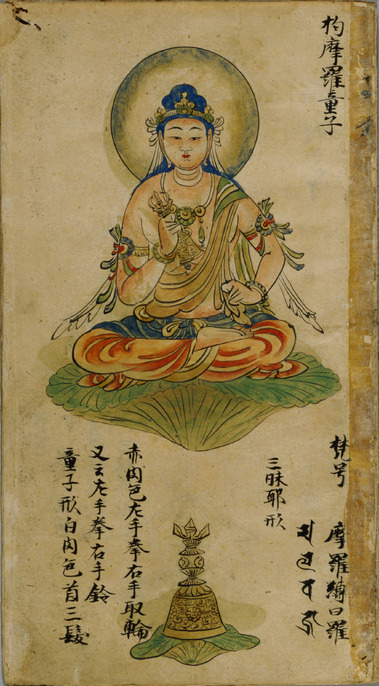 拘摩羅童子
梵号 摩羅縛日羅
三昧耶形
赤肉色左手拳右手取輪
又云左手拳右手鈴
童子形白肉色首三